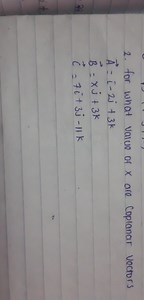 2. for what value of x are Coplanar vectors
A⃗ = i - 2j + 3k
B⃗ = xj + 3k
C⃗ = 7i + 3j - 11k